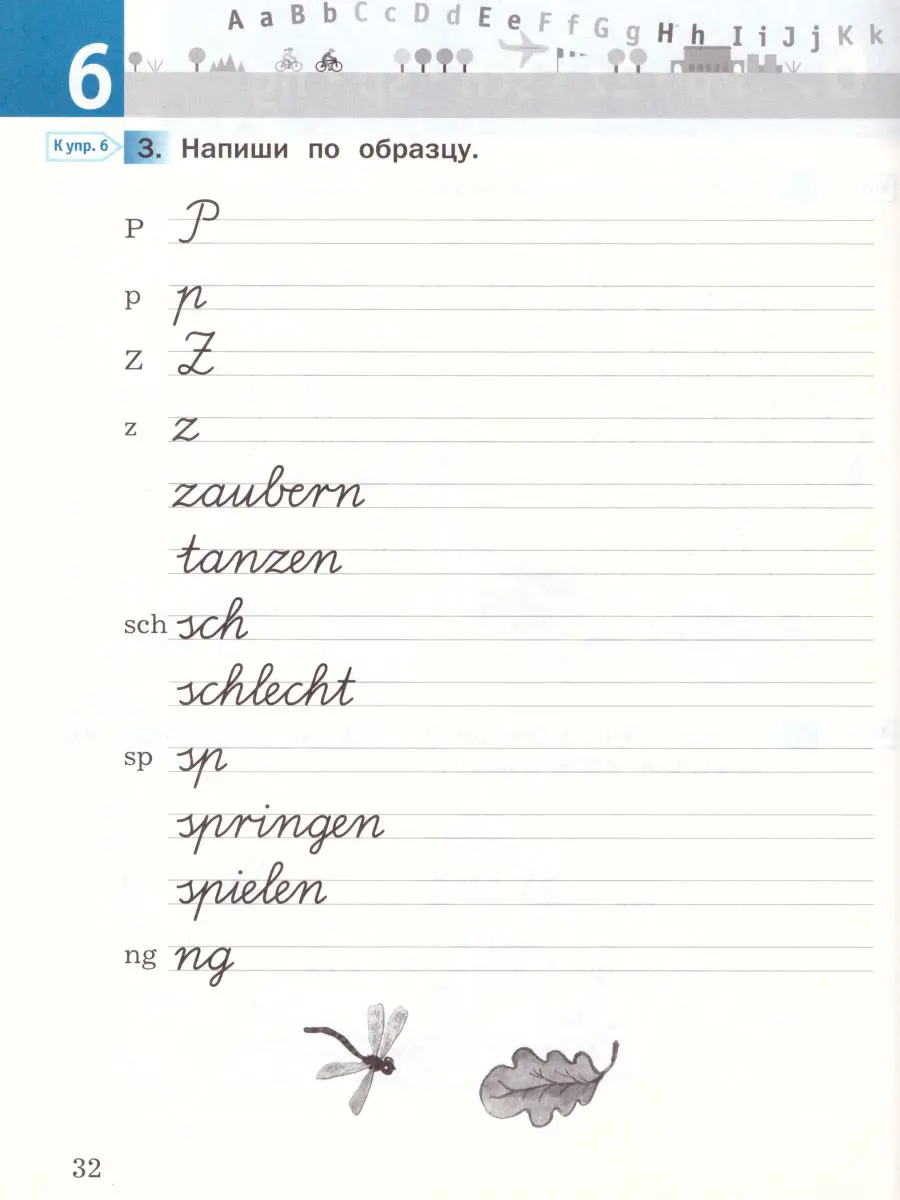 A a B b C c D d E e F f G g H h I i J j K k
6
К упр. 6 3. Напиши по образцу.
P P
p p
Z Z
z z
zaubern
tanzen
sch sch
schlecht
sp sp
springen
spielen
ng ng
32